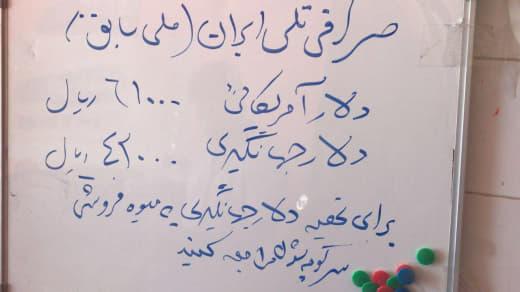 صرافی ملی ایران (ملی سابق)
دلار آمریکائی ۶۱۰۰۰ ریال
دلار جهانگیری ۴۲۰۰۰ ریال
برای تهیه دلار جهانگیری به میوه فروشی
سر کوچه مراجعه کنید